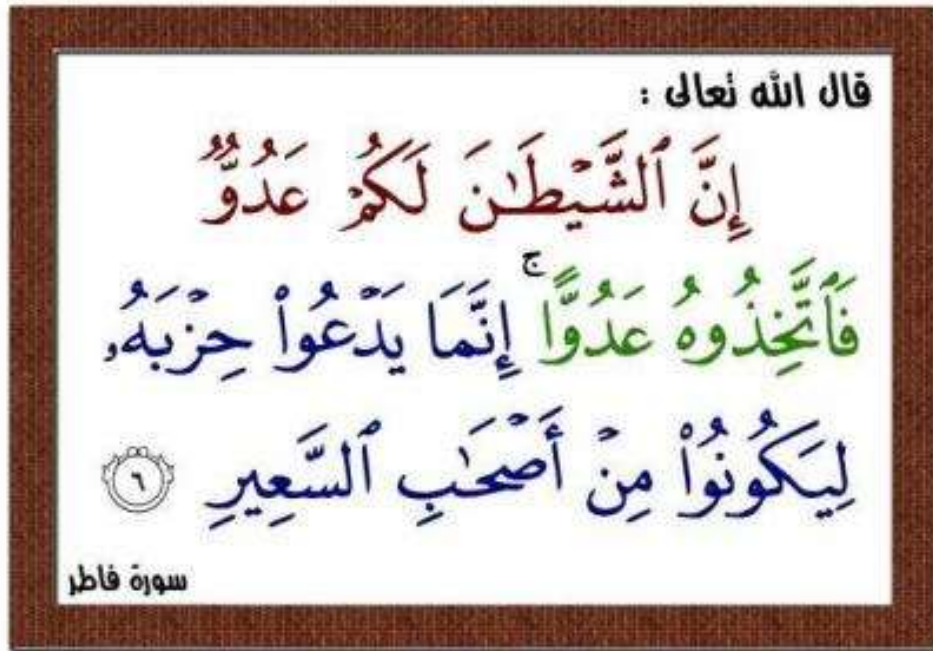 قال الله تعالى :
إِنَّ ٱلشَّيْطَـٰنَ لَكُمْ عَدُوٌّ
فَٱتَّخِذُوهُ عَدُوًّا ۚ إِنَّمَا يَدْعُوا۟ حِزْبَهُۥ
لِيَكُونُوا۟ مِنْ أَصْحَـٰبِ ٱلسَّعِيرِ ٦
سورة فاطر